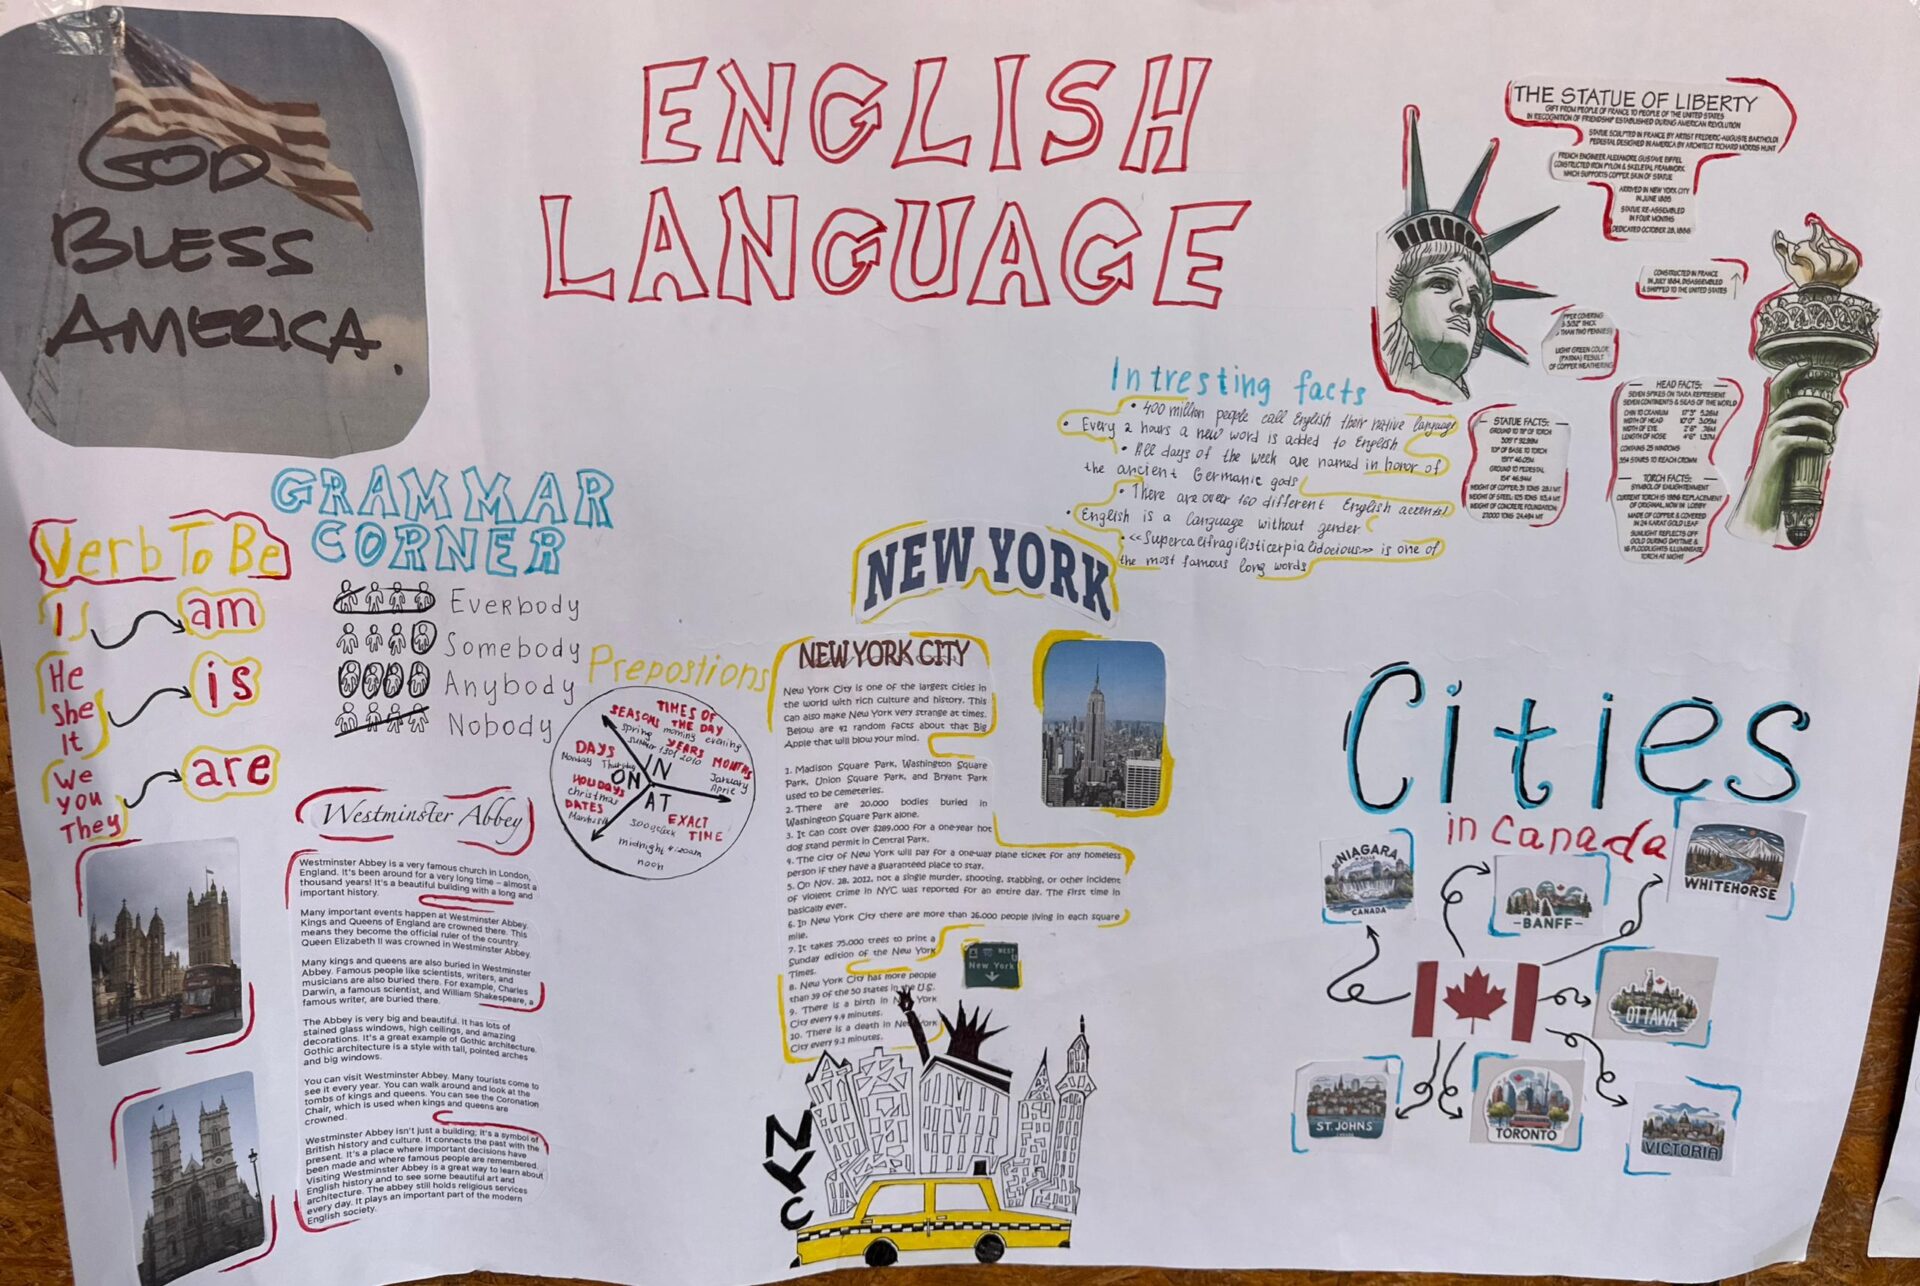 GOD
BLESS
AMERICA.
ENGLISH
LANGUAGE
THE STATUE OF LIBERTY
GIFT FROM PEOPLE OF FRANCE TO PEOPLE OF THE UNITED STATES
IN RECOGNITION OF FRIENDSHIP ESTABLISHED DURING AMERICAN REVOLUTION
STATUE SCULPTED IN FRANCE BY ARTIST FREDERIC-AUGUSTE BARTHOLDI
PEDESTAL DESIGNED IN AMERICA BY ARCHITECT RICHARD MORRIS HUNT
FRENCH ENGINEER ALEXANDRE GUSTAVE EIFFEL
CONSTRUCTED IRON PYLON & SKELETAL FRAMWORK
WHICH SUPPORTS COPPER SKIN OF STATUE
ARRIVED IN NEW YORK CITY
IN JUNE 1885
STATUE RE-ASSEMBLED
IN FOUR MONTHS
DEDICATED OCTOBER 28, 1886
CONSTRUCTED IN FRANCE
IN JULY 1884, DISASSEMBLED
& SHIPPED TO THE UNITED STATES
PPER COVERING
3/32" THICK
THAN TWO PENNIES)
LIGHT GREEN COLOR
(PATINA) RESULT
OF COPPER WEATHERING
HEAD FACTS:
SEVEN SPIKES ON TIARA REPRESENT
SEVEN CONTINENTS & SEAS OF THE WORLD
CHIN TO CRANIUM 17'3" 5.26M
WIDTH OF HEAD 10'0" 3.05M
WIDTH OF EYE 2'6" .76M
LENGTH OF NOSE 4'6" 1.37M
CONTAINS 25 WINDOWS
354 STAIRS TO REACH CROWN
TORCH FACTS:
SYMBOL OF ENLIGHTENMENT
CURRENT TORCH IS 1986 REPLACEMENT
OF ORIGINAL, NOW IN LOBBY
MADE OF COPPER & COVERED
IN 24 KARAT GOLD LEAF
SUNLIGHT REFLECTS OFF
GOLD DURING DAYTIME &
16 FLOODLIGHTS ILLUMINATE
TORCH AT NIGHT
STATUE FACTS:
GROUND TO TIP OF TORCH
305'1" 92.99M
TOP OF BASE TO TORCH
151'1" 46.05M
GROUND TO PEDESTAL
154' 46.94M
WEIGHT OF COPPER: 31 TONS 28.1 MT
WEIGHT OF STEEL: 125 TONS 113.4 MT
WEIGHT OF CONCRETE FOUNDATION:
27,000 TONS 24,494 MT
Intresting facts
• 400 million people call English their native language
• Every 2 hours a new word is added to English
• All days of the week are named in honor of
the ancient Germanic gods
• There are over 160 different English accents!
• English is a language without gender
• «Supercalifragilisticexpialidocious» is one of
the most famous long words
GRAMMAR
CORNER
Verb To Be
I am
He
She
It
is
We
You
They
are
Everbody
Somebody
Anybody
Nobody
Prepostions
TIMES OF
THE DAY
morning evening
SEASONS
spring
summer
YEARS
1501 2010
MONTHS
January
April
IN
DAYS
Monday Thursday
HOLIDAYS
christmas
DATES
ON
AT
EXACT
TIME
3:00 o'clock
midnight 4:20am
noon
Westminster Abbey
Westminster Abbey is a very famous church in London,
England. It's been around for a very long time – almost a
thousand years! It's a beautiful building with a long and
important history.
Many important events happen at Westminster Abbey.
Kings and Queens of England are crowned there. This
means they become the official ruler of the country.
Queen Elizabeth II was crowned in Westminster Abbey.
Many kings and queens are also buried in Westminster
Abbey. Famous people like scientists, writers, and
musicians are also buried there. For example, Charles
Darwin, a famous scientist, and William Shakespeare, a
famous writer, are buried there.
The Abbey is very big and beautiful. It has lots of
stained glass windows, high ceilings, and amazing
decorations. It's a great example of Gothic architecture.
Gothic architecture is a style with tall, pointed arches
and big windows.
You can visit Westminster Abbey. Many tourists come to
see it every year. You can walk around and look at the
tombs of kings and queens. You can see the Coronation
Chair, which is used when kings and queens are
crowned.
Westminster Abbey isn't just a building; it's a symbol of
British history and culture. It connects the past with the
present. It's a place where important decisions have
been made and where famous people are remembered.
Visiting Westminster Abbey is a great way to learn about
English history and to see some beautiful art and
architecture. The abbey still holds religious services
every day. It plays an important part of the modern
English society.
NEW YORK
NEW YORK CITY
New York City is one of the largest cities in
the world with rich culture and history. This
can also make New York very strange at times.
Below are 42 random facts about that Big
Apple that will blow your mind.
1. Madison Square Park, Washington Square
Park, Union Square Park, and Bryant Park
used to be cemeteries.
2. There are 20.000 bodies buried in
Washington Square Park alone.
3. It can cost over $289.000 for a one-year hot
dog stand permit in Central Park.
4. The city of New York will pay for a one-way plane ticket for any homeless
person if they have a guaranteed place to stay.
5. On Nov. 28, 2012, not a single murder, shooting, stabbing, or other incident
of violent crime in NYC was reported for an entire day. The first time in
basically ever.
6. In New York City there are more than 26.000 people living in each square
mile.
7. It takes 75.000 trees to print a
Sunday edition of the New York
Times.
8. New York City has more people
than 39 of the 50 states in the U.S.
9. There is a birth in New York
City every 4.4 minutes.
10. There is a death in New York
City every 9.1 minutes.
WEST
New York
NYC
Cities
in Canada
NIAGARA
FALLS
CANADA
BANFF
WHITEHORSE
OTTAWA
ST. JOHNS
TORONTO
VICTORIA